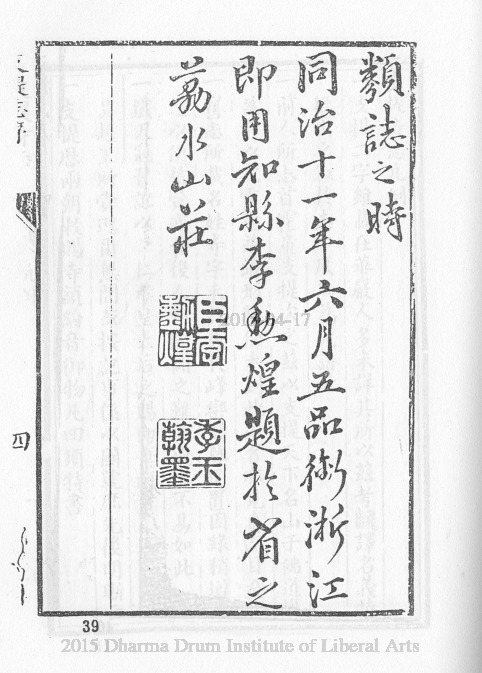 類誌之時
同治十一年六月五品銜浙江
即用知縣李勲煌題於省之
荔水山莊
臣李勳煌
季玉翰墨
四
39
2015 Dharma Drum Institute of Liberal Arts